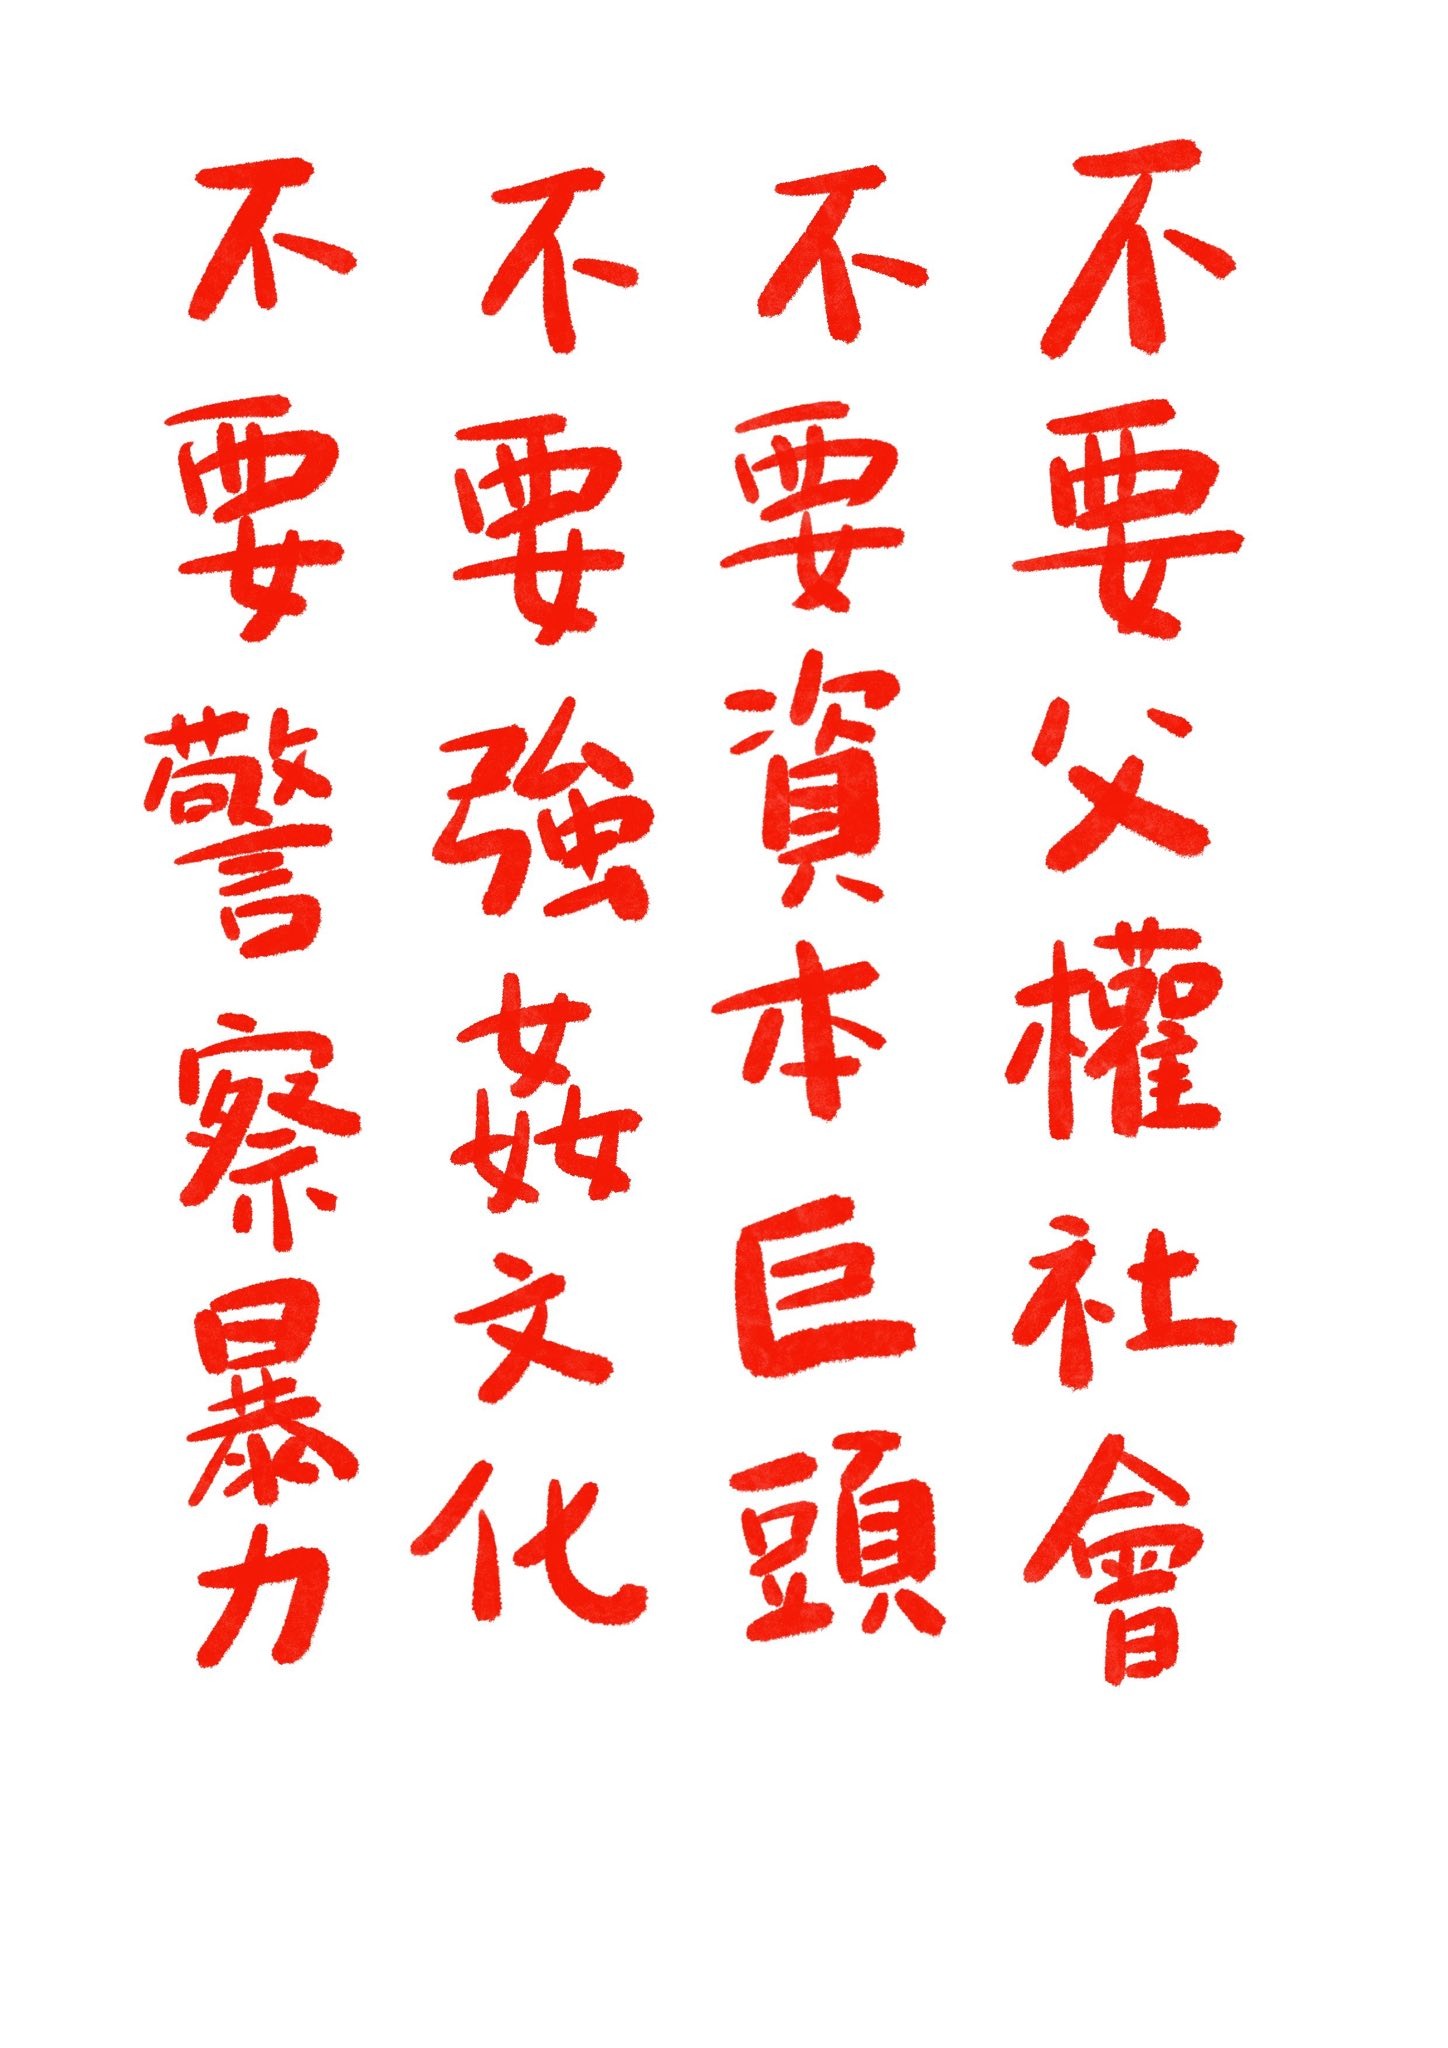 不要父權社會
不要資本巨頭
不要強姦文化
不要警察暴力